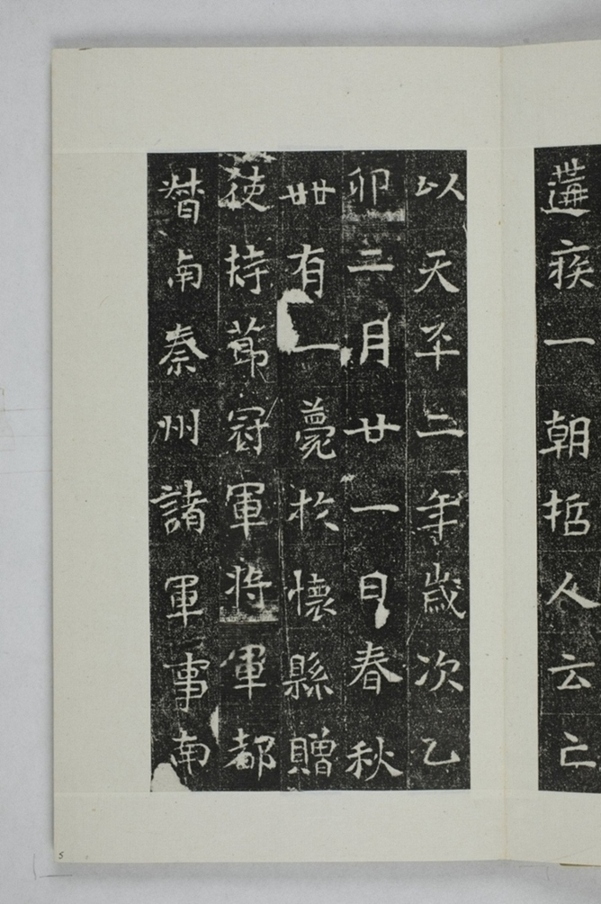 遘疾一朝哲人云亡
以天平二年歲次乙
卯二月廿一日春秋
卌有一薨於懷縣贈
使持節冠軍將軍都
督南秦州諸軍事南
5